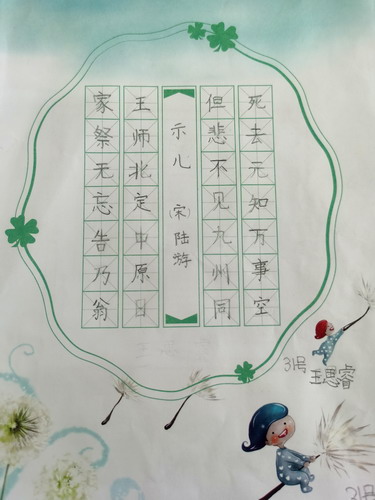 死去元知万事空
但悲不见九州同
示儿 (宋)陆游
王师北定中原日
家祭无忘告乃翁
31号
王思睿
31号